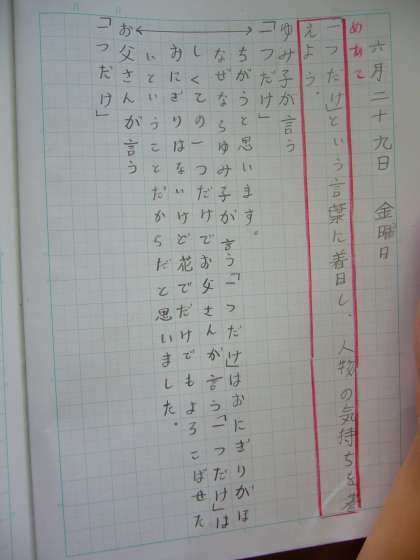 六月二十九日 金曜日
めあて
「一つだけ」という言葉に着目し、人物の気持ちを考
えよう。
ゆみ子が言う
「一つだけ」
ちがうと思います。
なぜならゆみ子が言う「一つだけ」はおにぎりがほ
しくての一つだけでお父さんが言う「一つだけ」は
おにぎりはないけど花でだけでもよろこばせた
いということだからだと思いました。
お父さんが言う
「一つだけ」